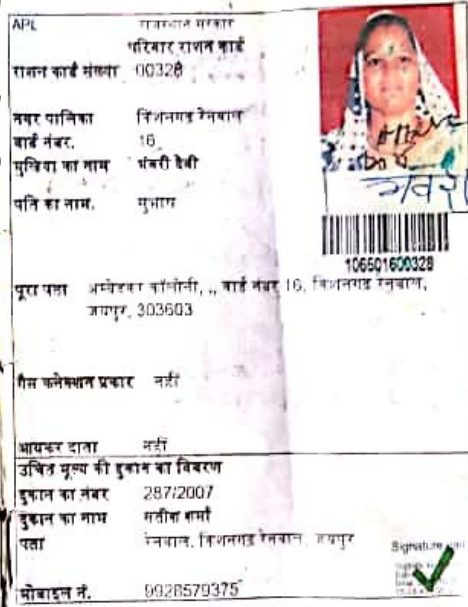 APL
राजस्थान सरकार
परिवार राशन कार्ड
राशन कार्ड संख्या 00328
नगर पालिका किशनगढ़ रेनवाल
वार्ड नंबर. 16
मुखिया का नाम भंवरी देवी
पति का नाम. सुभाष
106501600328
पूरा पता अम्बेडकर कॉलोनी, ,, वार्ड नंबर 16, किशनगढ़ रेनवाल,
जयपुर, 303603
गैस कनेक्शन प्रकार नहीं
आयकर दाता नहीं
उचित मूल्य की दुकान का विवरण
दुकान का नंबर 287/2007
दुकान का नाम सतीश शर्मा
पता रेनवाल, किशनगढ़ रेनवाल, जयपुर
मोबाइल नं. 9928579375
Signature